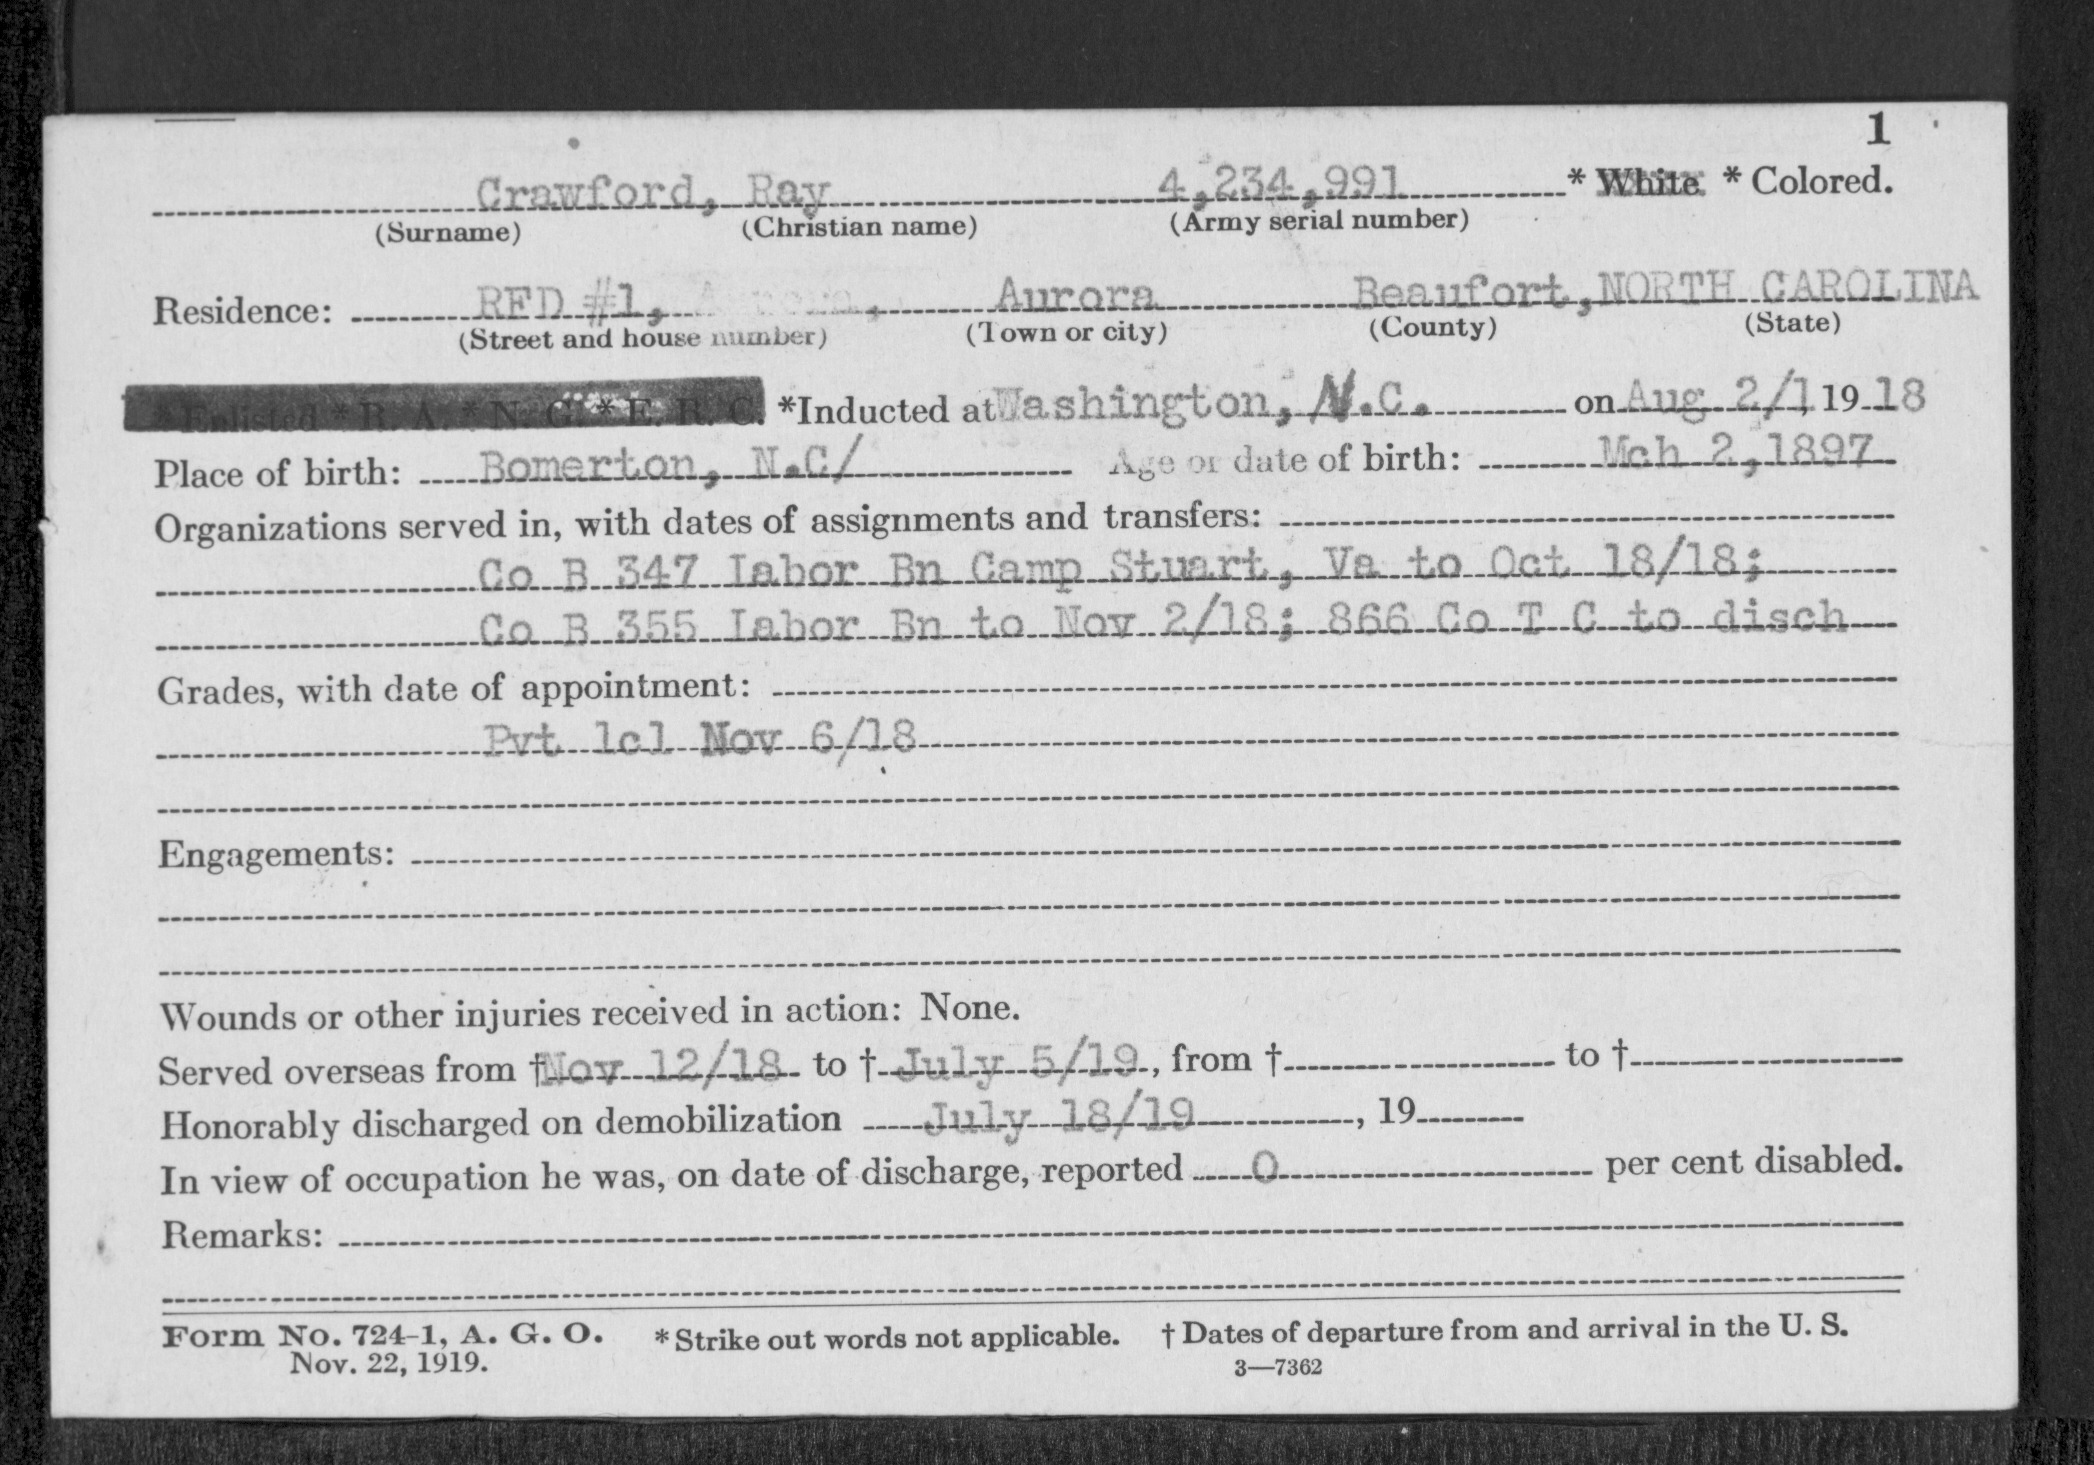 1
Crawford, Ray 4,234,991 * White * Colored.
(Surname) (Christian name) (Army serial number)
Residence: RFD #1, Aurora, Aurora Beaufort, NORTH CAROLINA
(Street and house number) (Town or city) (County) (State)
* Enlisted * R. A. * N. G. * E. R. C. *Inducted at Washington, N.C. on Aug 2/1, 19 18
Place of birth: Bomerton, N.C/ Age or date of birth: Mch 2,1897
Organizations served in, with dates of assignments and transfers:
Co B 347 Labor Bn Camp Stuart, Va to Oct 18/18;
Co B 355 Labor Bn to Nov 2/18; 866 Co T C to disch
Grades, with date of appointment:
Pvt 1cl Nov 6/18
Engagements:
Wounds or other injuries received in action: None.
Served overseas from † Nov 12/18 to † July 5/19, from † to †
Honorably discharged on demobilization July 18/19, 19
In view of occupation he was, on date of discharge, reported 0 per cent disabled.
Remarks:
Form No. 724-1, A. G. O. * Strike out words not applicable. † Dates of departure from and arrival in the U. S.
Nov. 22, 1919. 3—7362